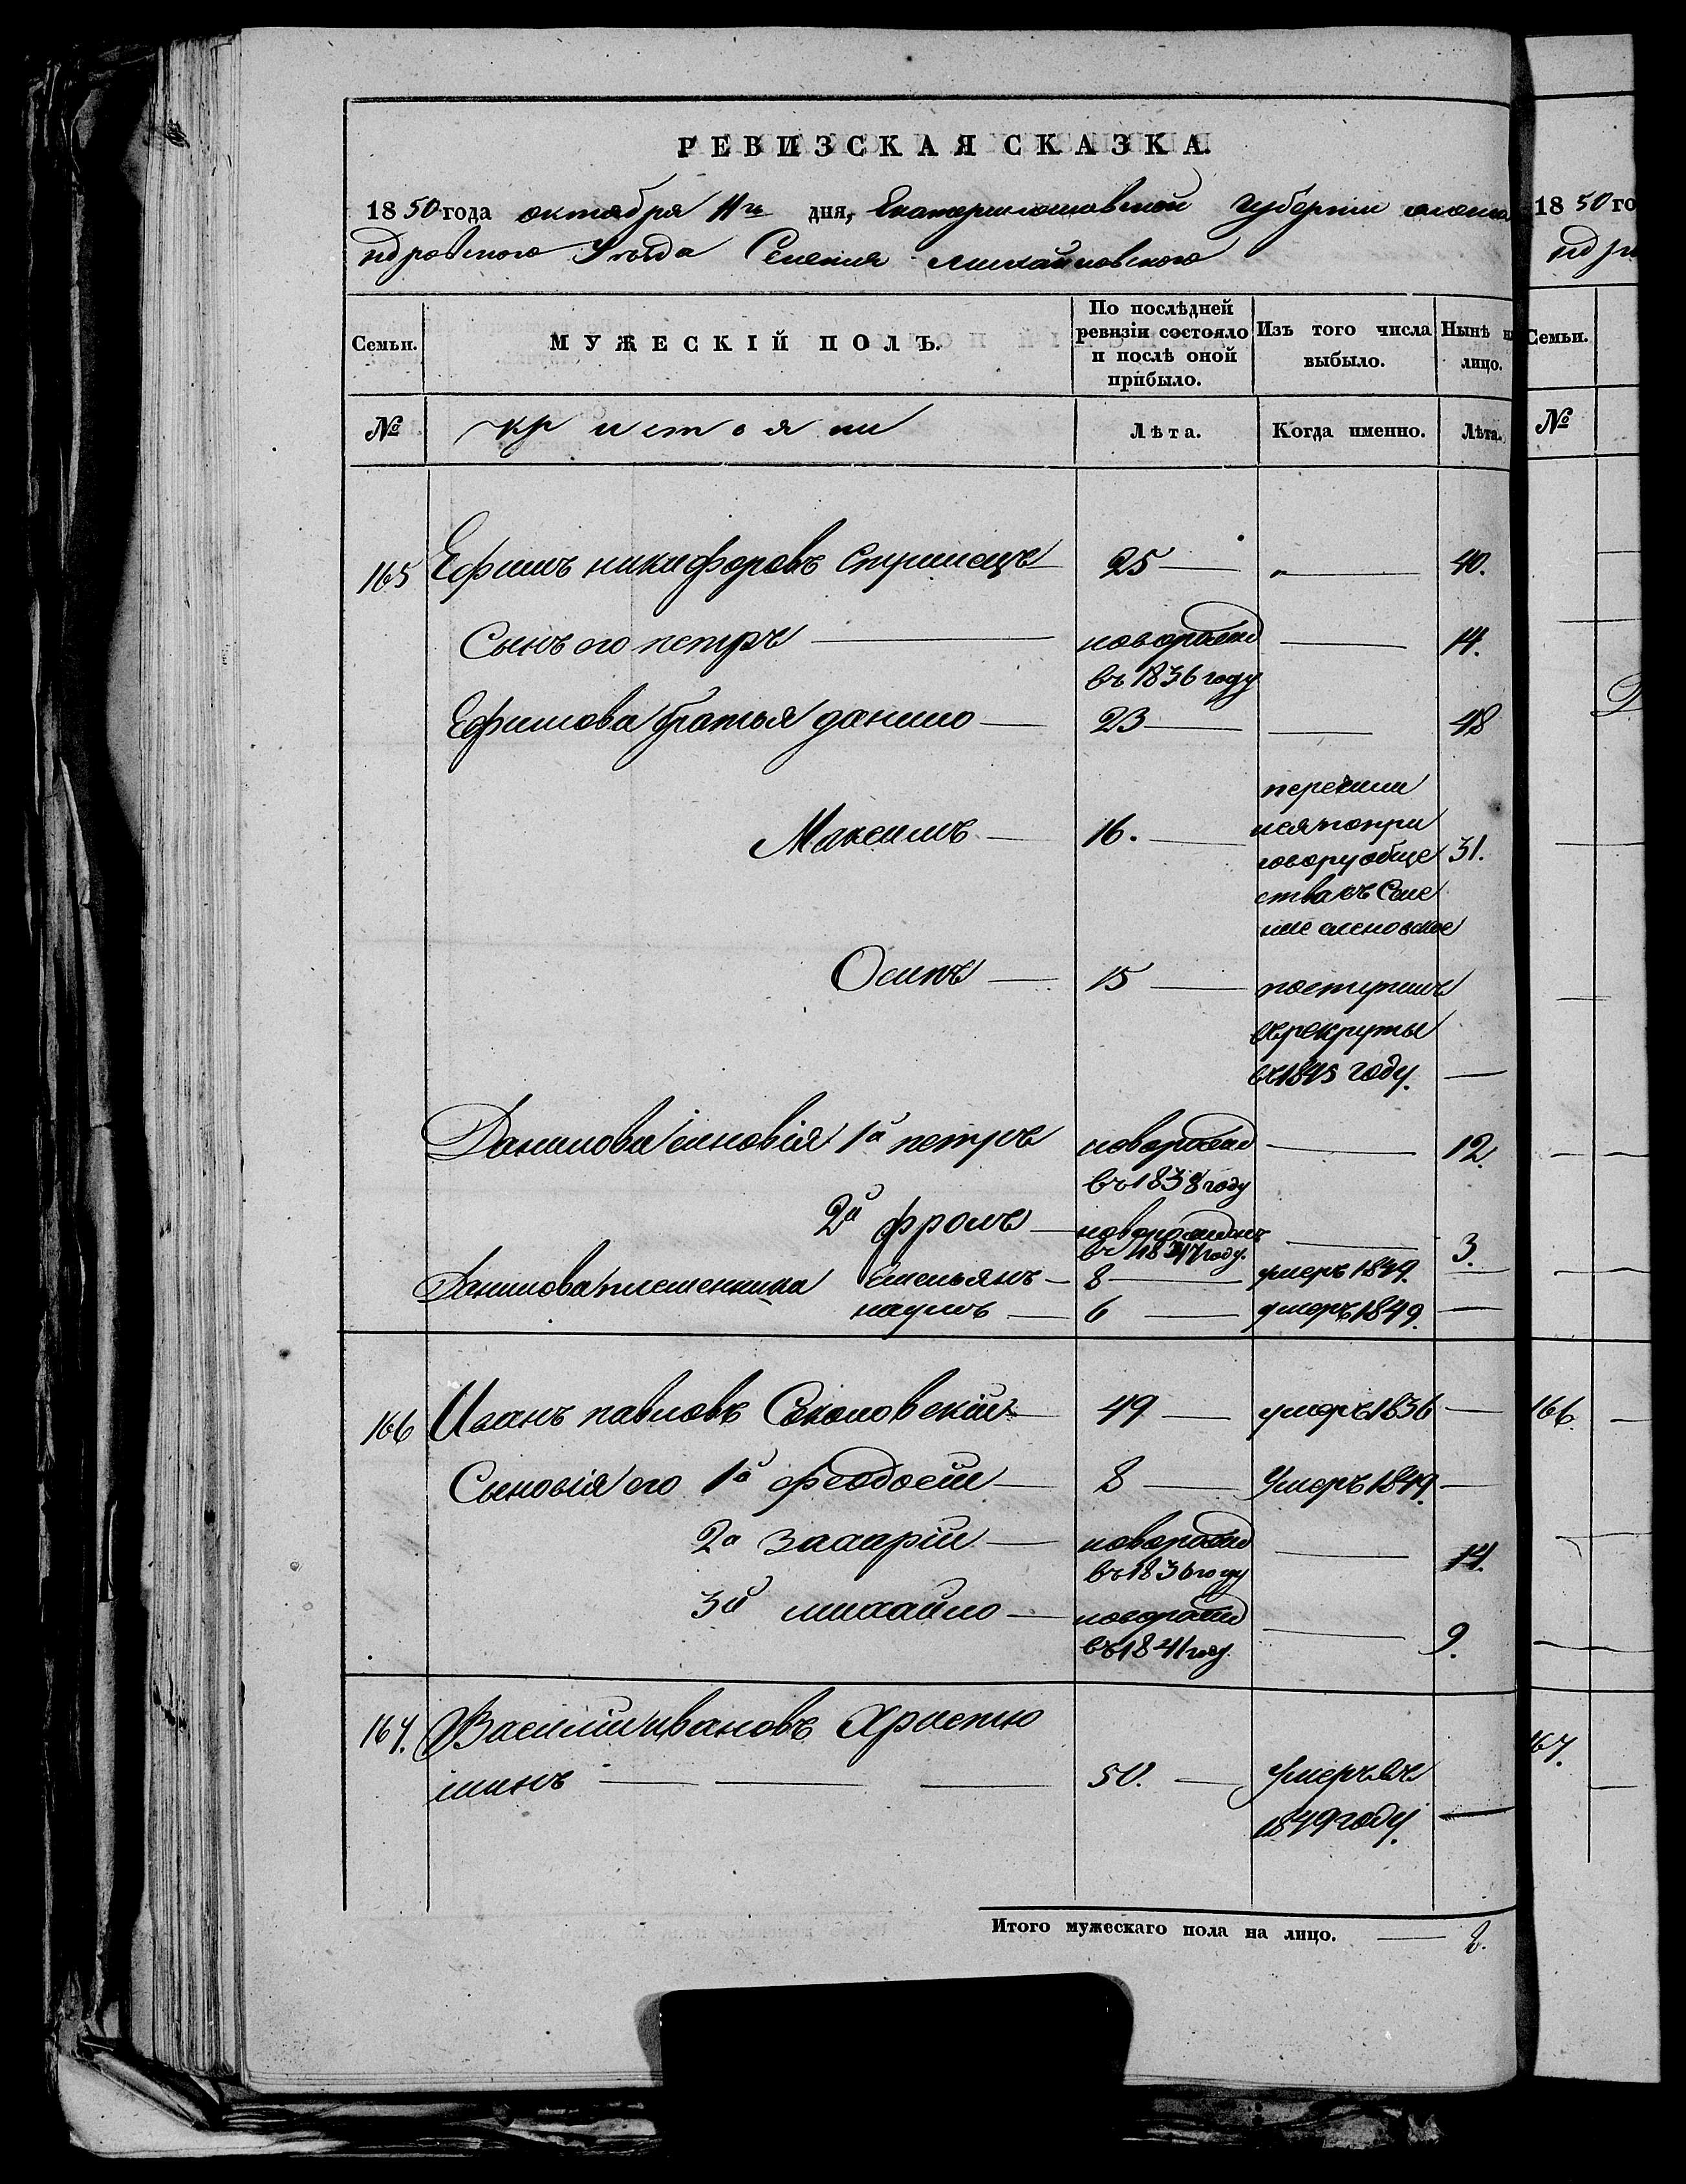 РЕВИЗСКАЯ СКАЗКА.
1850 года октября 11го дня, Екатеринославской Губернiи алекса
ндровского Уезда Селения михайловского
Семьи. МУЖЕСКIЙ ПОЛЪ. По послѣдней ревизiи состояло и послѣ оной прибыло. Изъ того числа выбыло. Нынѣ на лицо.
№ Лѣта. Когда именно. Лѣта.
165 Ефимъ никифоровъ 25 — „ — 40.
Сынъ его петръ — новорожд — 14.
въ 1836 году
Ефимова братья данило — 23 — — 48
перечили
Максимъ — 16. — лся по при
говору обще 31.
ства въ Селе
нiе
Осипъ — 15 — поступилъ
въ рекруты
въ 1845 году. —
Данилова сыновiя 1й петръ новорожд — 12.
въ 1838 году
2й фролъ — новорожденъ — 3.
въ 1847 году.
Данилова племенника Емельянъ — 8 — умеръ 1849. —
наумъ — 6 — умеръ 1849. —
166 Иванъ павловъ Соколовскiй — 49 — умеръ 1836 —
Сыновiя его 1й феодосiй — 8 — Умеръ 1849. —
2й захарiй — новорожд — 14.
въ 1836 году
3й михайло — новорожд — 9.
въ 1841 году.
167. Василiй ивановъ Христю
шинъ — — — 50. — Умеръ въ
1849 году. —
Итого мужескаго пола на лицо. — 8.
1850 го
ндро
Семьи.
№
166.
167.